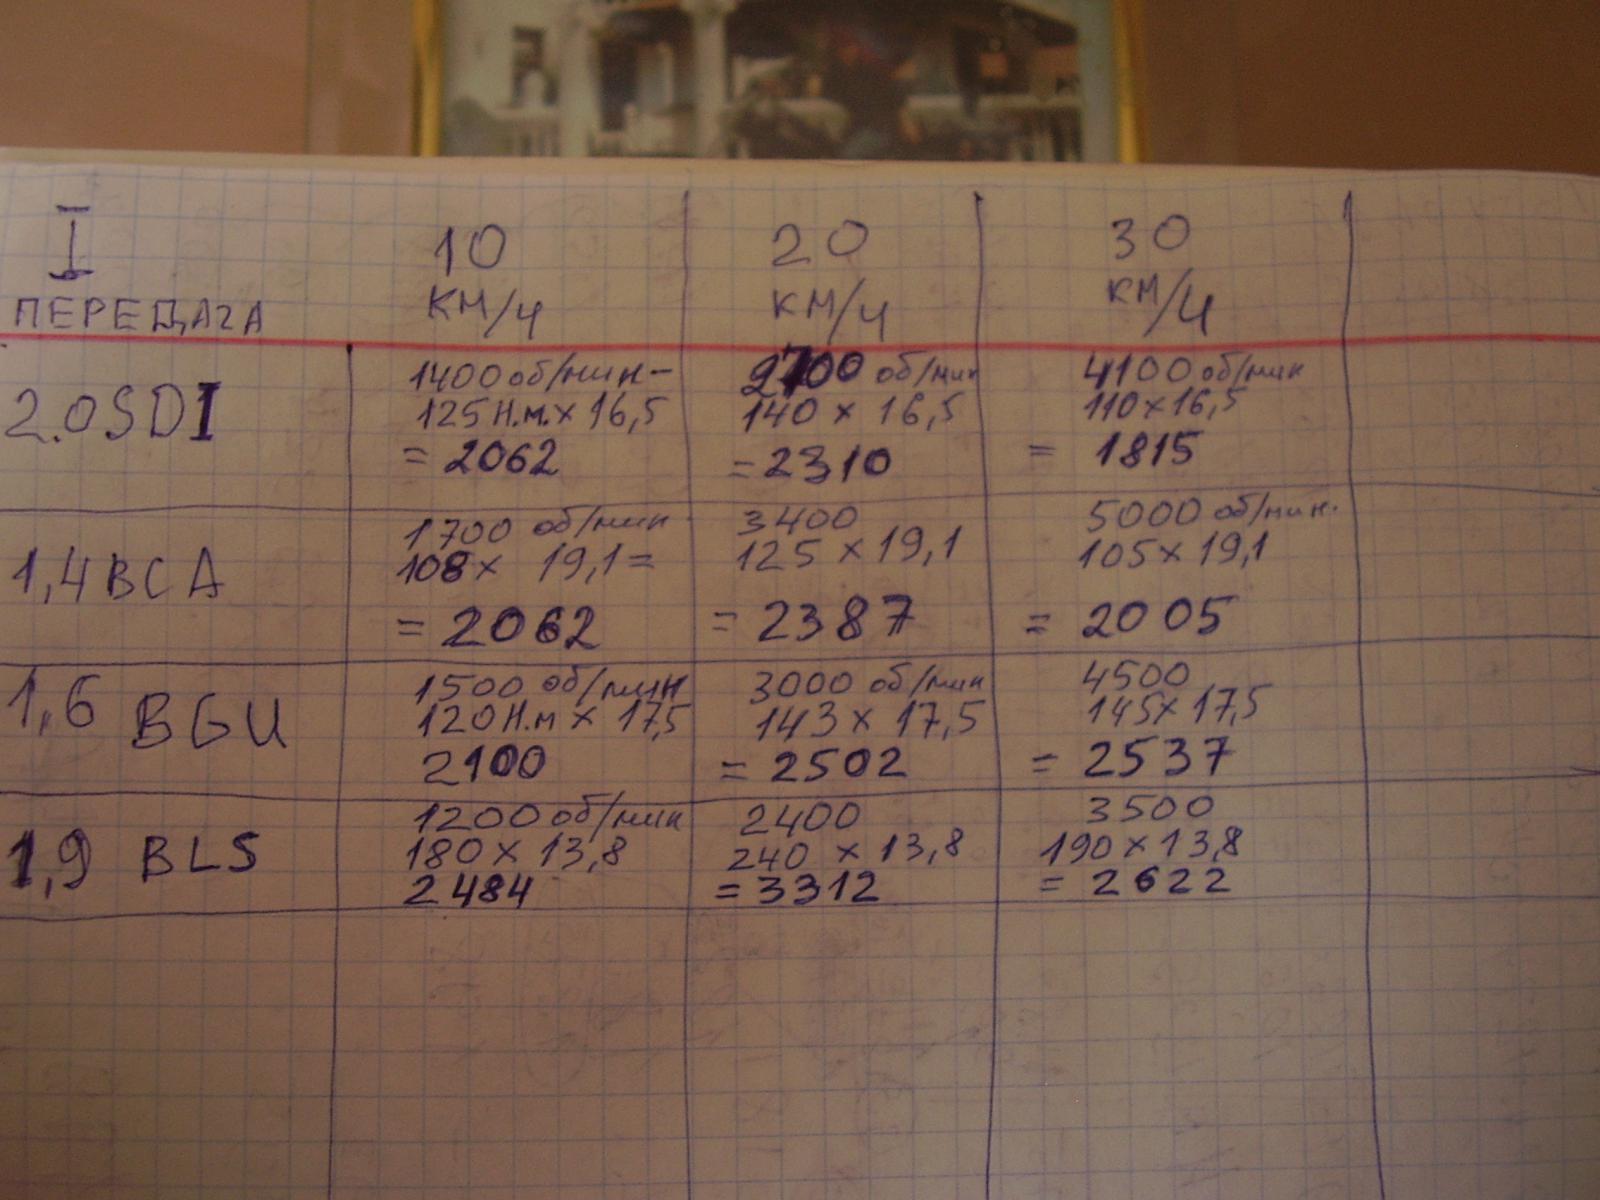 I
ПЕРЕДАЧА
10
КМ/Ч
20
КМ/Ч
30
КМ/Ч
2.0SDI
1400 об/мин-
125 Н.м. х 16,5
= 2062
2700 об/мин
140 х 16,5
= 2310
4100 об/мин
110 х 16,5
= 1815
1,4 BCA
1700 об/мин.
108 х 19,1 =
= 2062
3400
125 х 19,1
= 2387
5000 об/мин.
105 х 19,1
= 2005
1,6 BGU
1500 об/мин
120 Н.м х 17,5
2100
3000 об/мин
143 х 17,5
= 2502
4500
145х 17,5
= 2537
1,9 BLS
1200 об/мин
180 х 13,8
2484
2400
240 х 13,8
= 3312
3500
190 х 13,8
= 2622